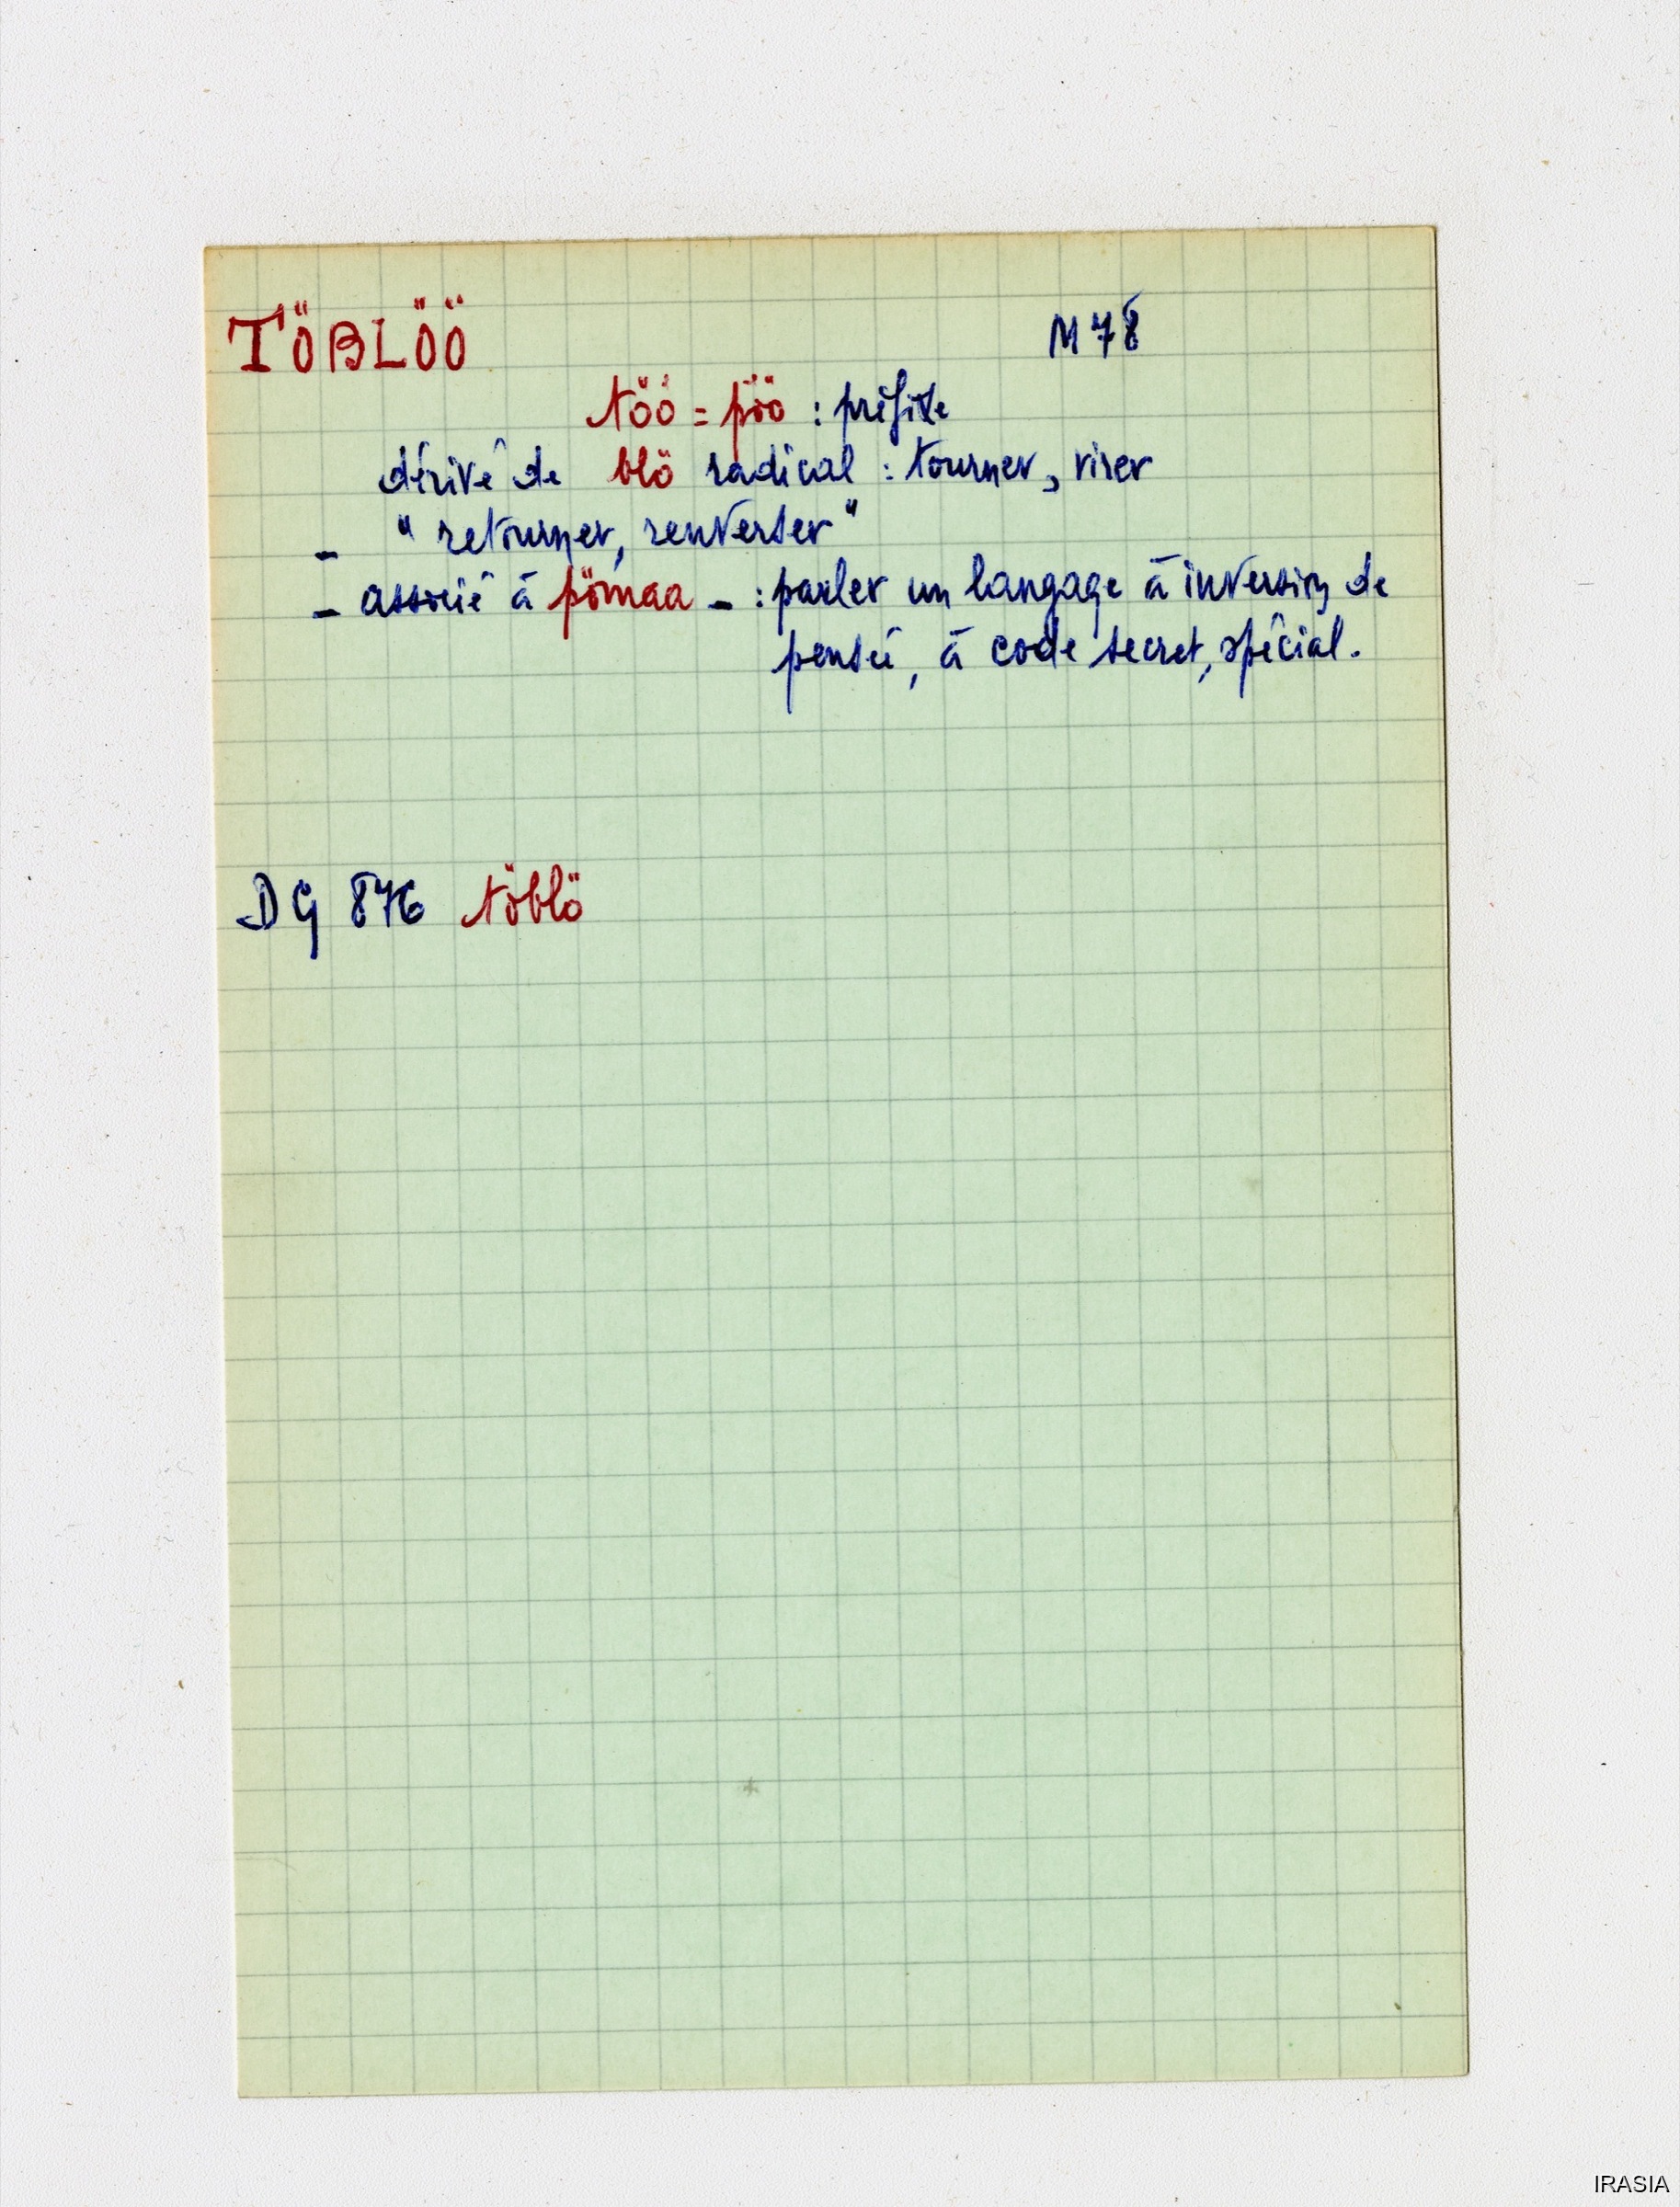 TÖBLÖÖ
M 78
töö = pöö : préfixe
dérivé de blö radical : tourner, virer
_ " retourner, renverser "
_ associé à pömaa _ : parler un langage à inversion de
pensée, à code secret, spécial.
DG 876 töblö
IRASIA